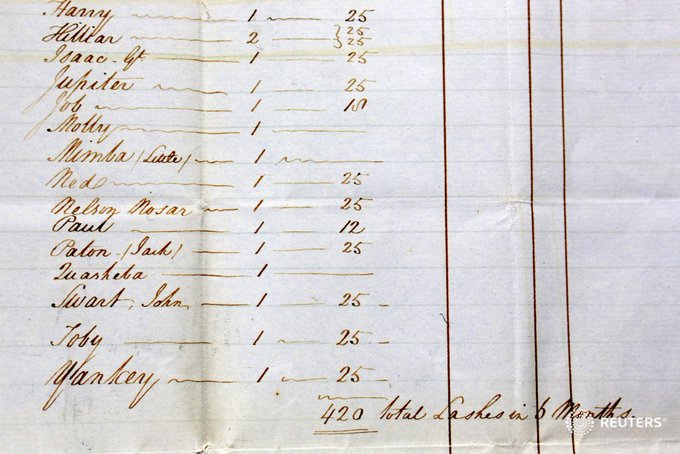 Harry 1 25
Helliar 2 } 25
} 25
Isaac - Gt 1 25
Jupiter 1 25
Job 1 18
Molly 1
Mimba (Little) 1
Ned 1 25
Nelson Rosar 1 25
Paul 1 12
Paton (Jack) 1 25
Quasheba 1
Swart, John 1 25
Toby 1 25
Yankey 1 25
420 total Lashes in 6 Months.
REUTERS